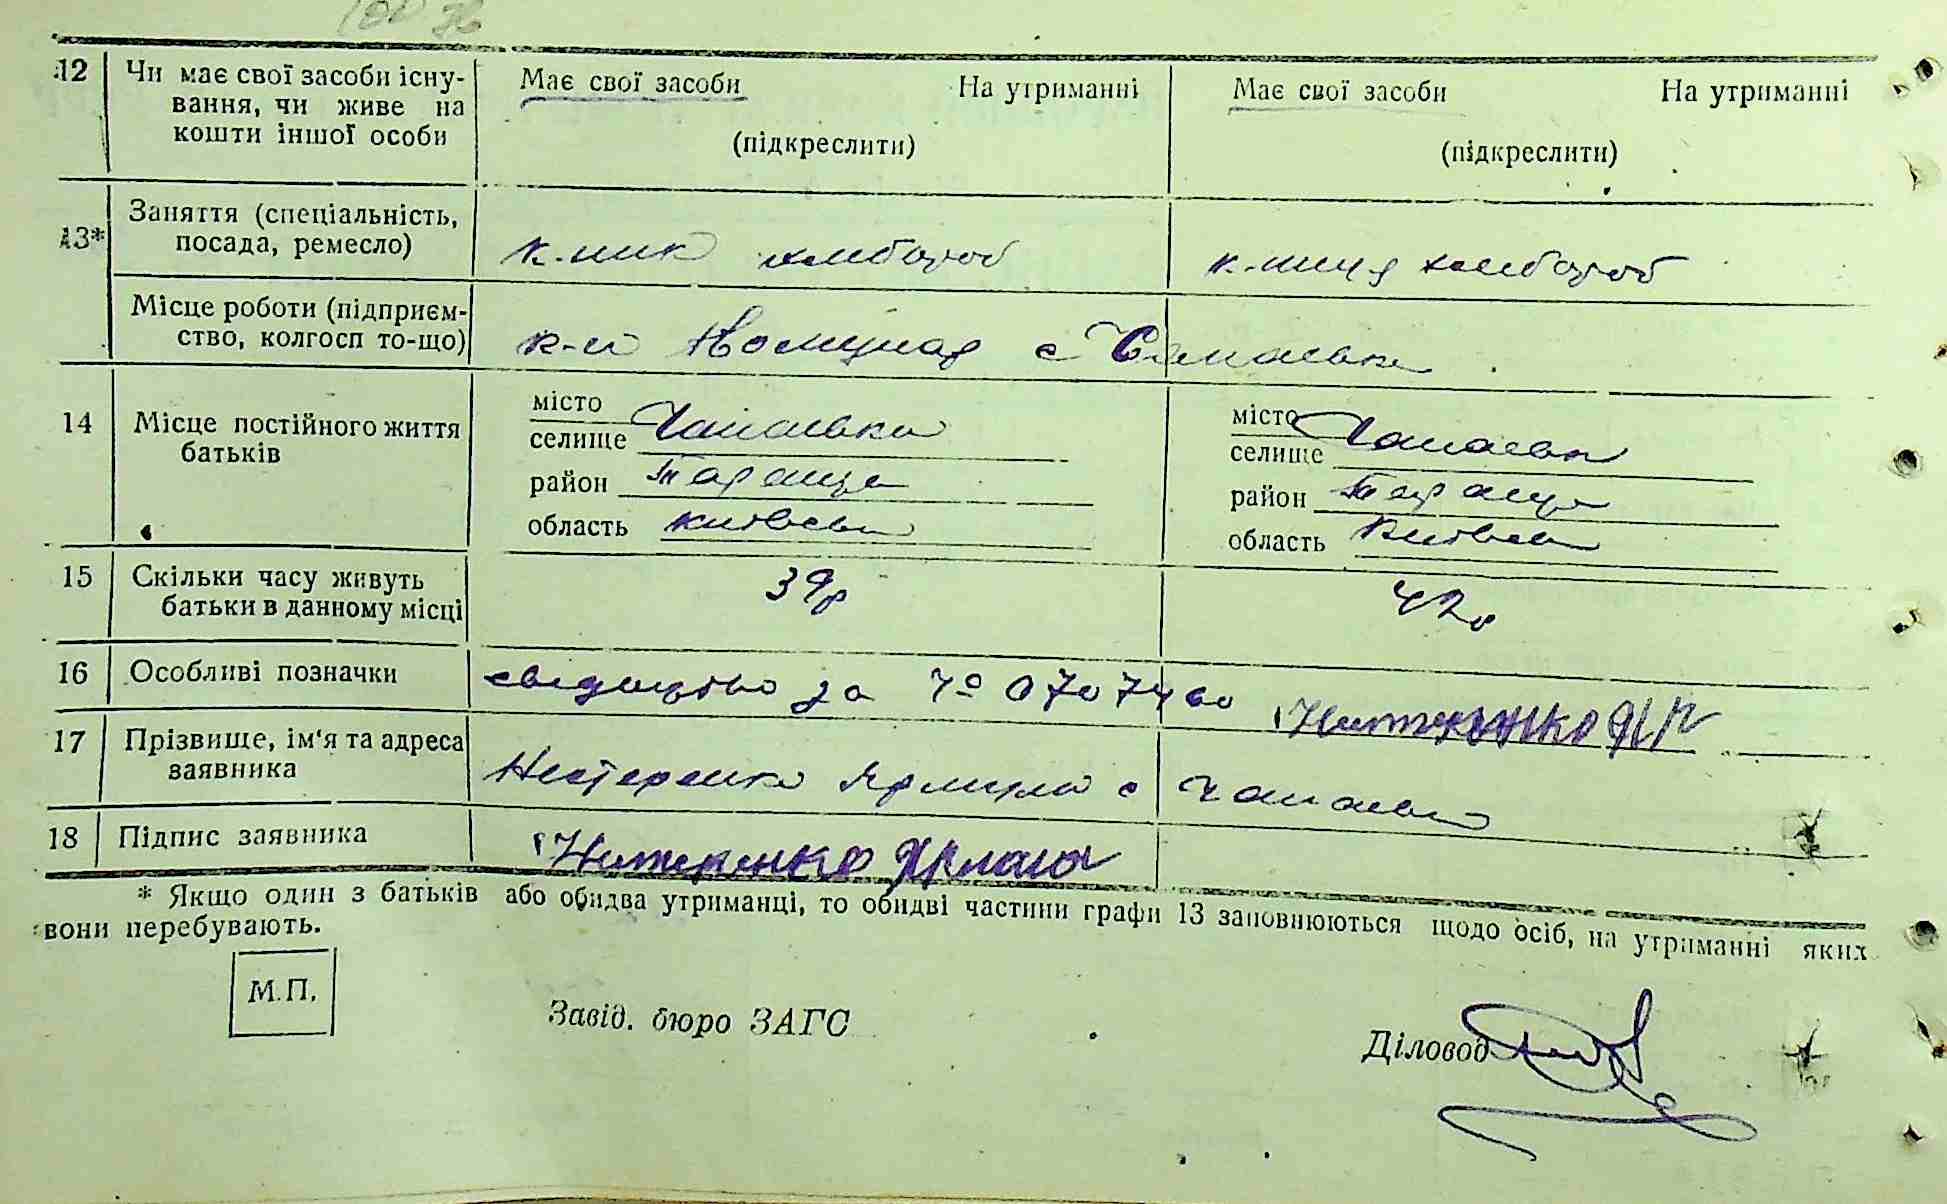 12 Чи має свої засоби існу-
вання, чи живе на
кошти іншої особи
Має свої засоби На утриманні
(підкреслити)
Має свої засоби На утриманні
(підкреслити)
13* Заняття (спеціальність,
посада, ремесло)
к-ник хлібороб
к-ниця хлібороб
Місце роботи (підприєм-
ство, колгосп то-що)
к-п с
14 Місце постійного життя
батьків
місто
селище Чапаєвка
район Тараща
область
місто
селище Чапаєвк
район Тараща
область
15 Скільки часу живуть
батьки в данному місці
39р
42р
16 Особливі позначки
свідоцтво за № 070740
17 Прізвище, ім'я та адреса
заявника
Нестеренко с Чапаєвк
18 Підпис заявника
* Якщо один з батьків або обидва утриманці, то обидві частини графи 13 заповнюються щодо осіб, на утриманні яких
вони перебувають.
М.П.
Завід. бюро ЗАГС
Діловод